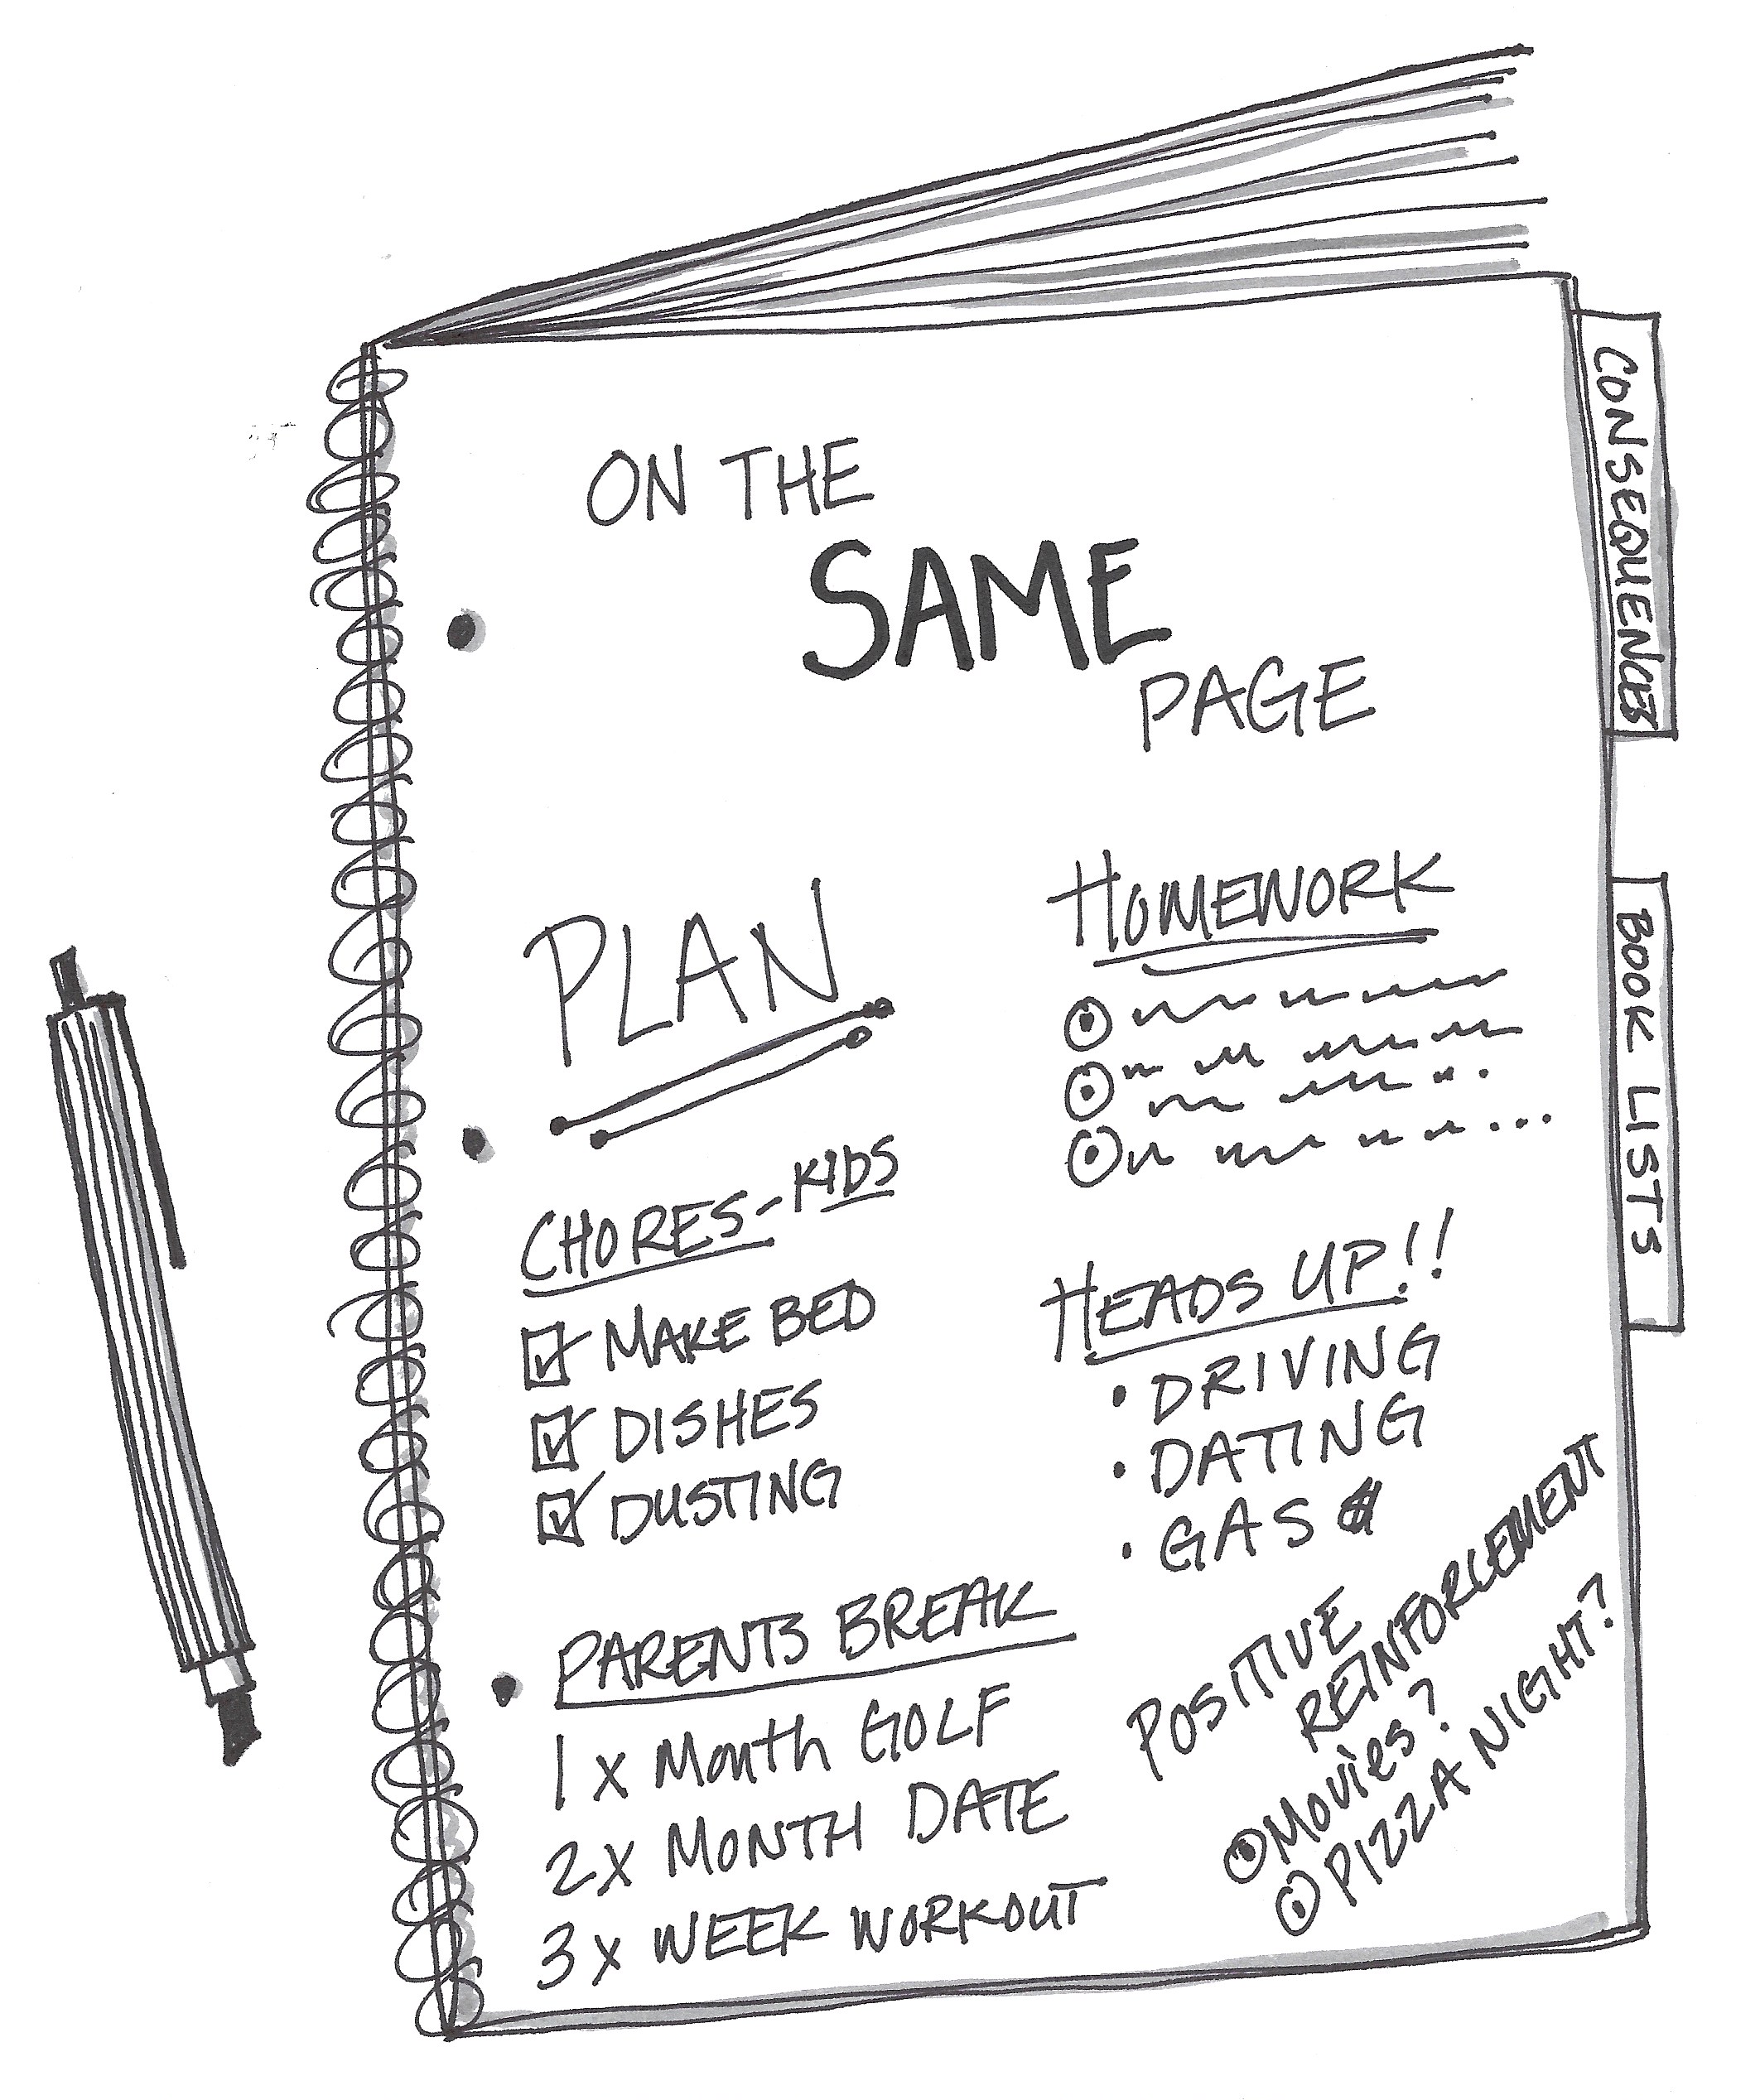 ON THE
SAME
PAGE
PLAN
CHORES-KIDS
MAKE BED
DISHES
DUSTING
PARENTS BREAK
1 x Month GOLF
2x MONTH DATE
3x WEEK WORKOUT
HOMEWORK
HEADS UP!!
• DRIVING
• DATING
• GAS $
POSITIVE
REINFORCEMENT
Movies?
PIZZA NIGHT?
CONSEQUENCES
BOOK LISTS